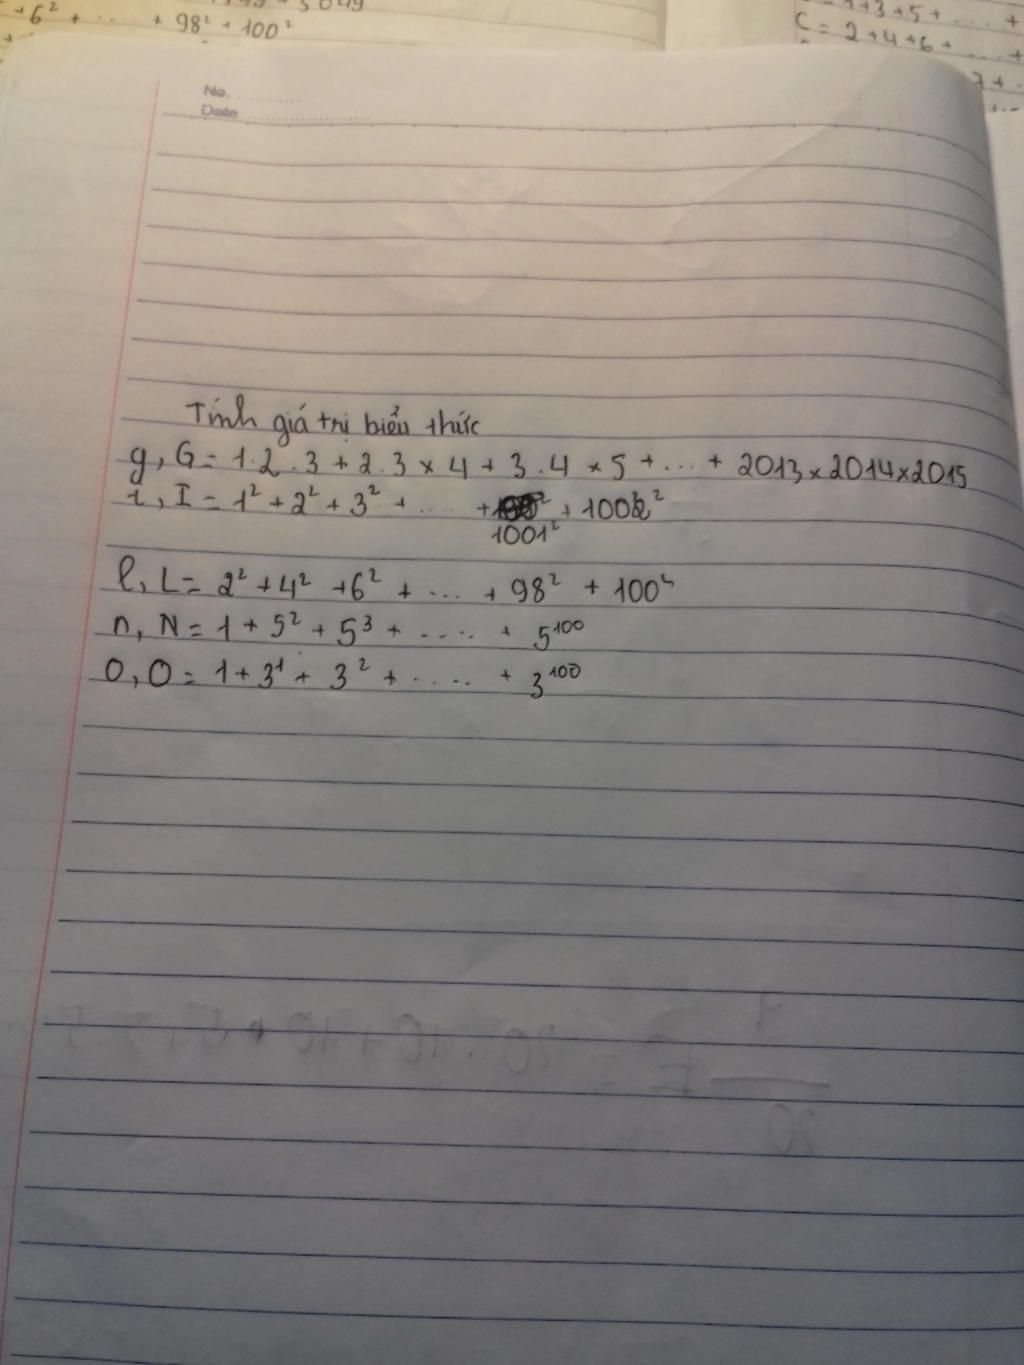 +6² + ..... + 98² + 100²
C = 2+4+6+ .... +
No. ............
Date ......................
Tính giá trị biểu thức
g, G = 1.2.3 + 2.3 × 4 + 3.4 × 5 + ... + 2013 × 2014 × 2015
i, I = 1² + 2² + 3² + .... + 1001² + 1002²
l, L = 2² + 4² + 6² + ... + 98² + 100²
n, N = 1 + 5² + 5³ + ..... + 5¹⁰⁰
O, O = 1 + 3¹ + 3² + ..... + 3¹⁰⁰